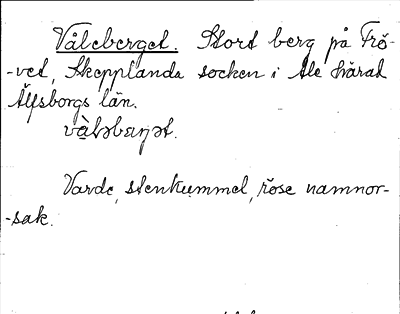 Våleberget. Stort berg på Frö-
-ved, Skepplanda socken i Ale härad
Älfsborgs län.
Varde, stenkummel, röse namnor-
-sak.